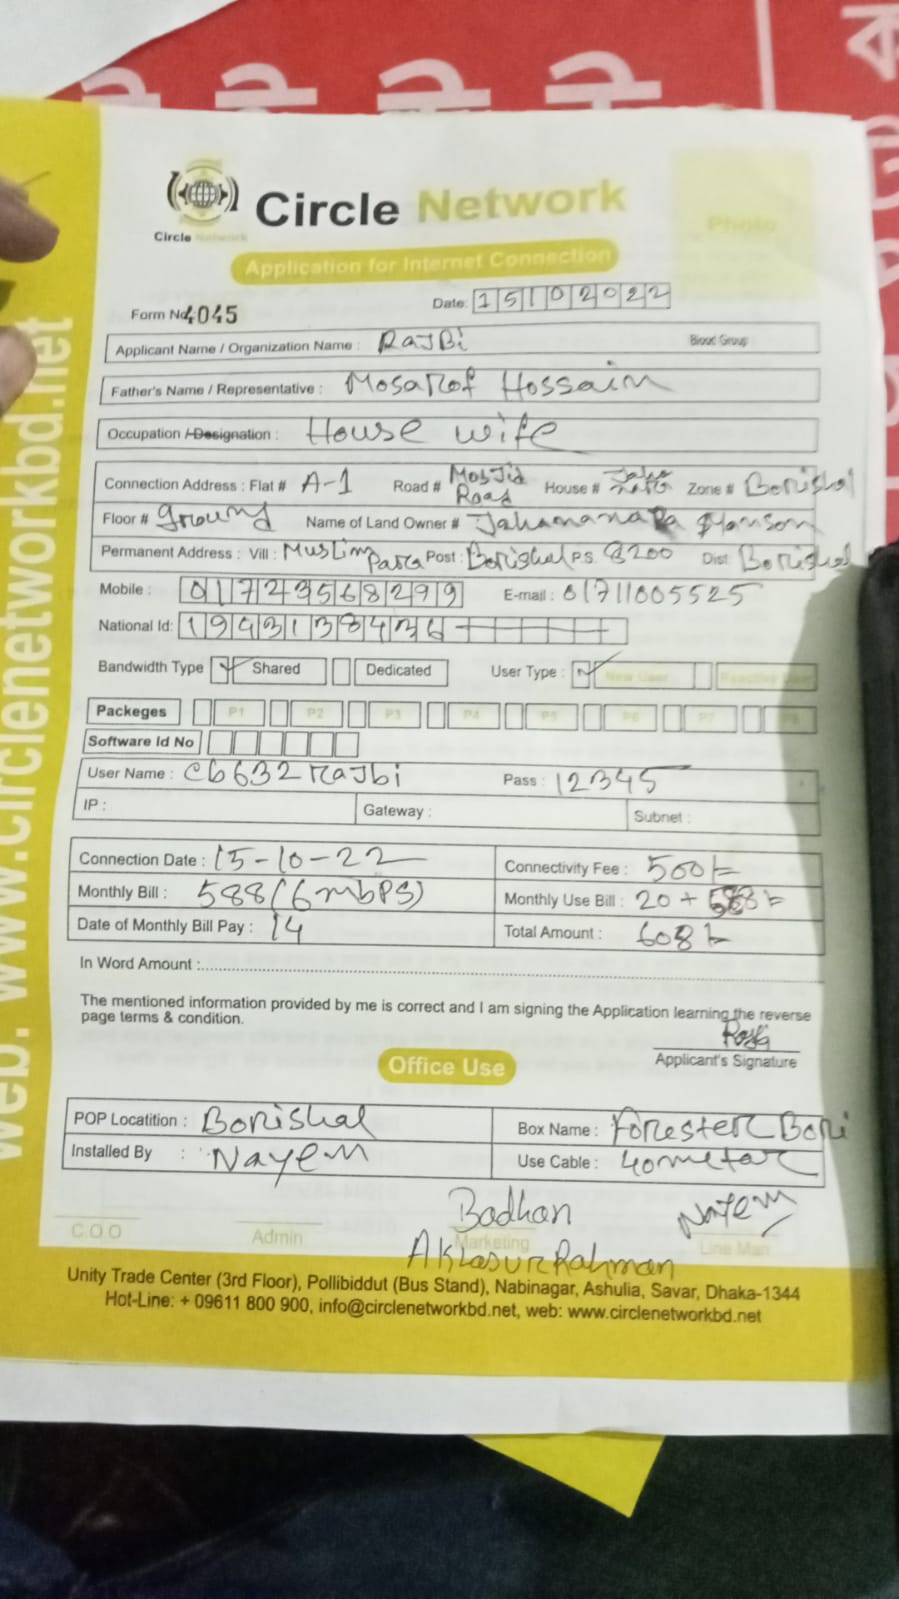 web: www.circlenetworkbd.net
Circle Network
Circle Network
Photo
Application for Internet Connection
Form No 4045
Date: 15102022
Applicant Name / Organization Name : RAJBi
Blood Group
Father's Name / Representative : Mosarof Hossain
Occupation / Designation : House wife
Connection Address : Flat # A-1 Road # Mosjid Road House # Zone # Borishal
Floor # ground Name of Land Owner #
Permanent Address : Vill : Muslim Para Post : Borishal P.S. 8200 Dist: Borishal
Mobile : 01723568299 E-mail : 01711005525
National Id:
Bandwidth Type Shared Dedicated User Type : New User
Packeges P1 P2 P3 P4 P5 P6 P7 P8
Software Id No
User Name : cb632rajbi Pass : 12345
IP : Gateway : Subnet :
Connection Date : 15-10-22 Connectivity Fee : 500/-
Monthly Bill : 588 (6mbps) Monthly Use Bill : 20 + 588/-
Date of Monthly Bill Pay : 14 Total Amount : 608/-
In Word Amount :
The mentioned information provided by me is correct and I am signing the Application learning the reverse
page terms & condition.
Applicant's Signature
Office Use
POP Locatition : Borishal Box Name : Forester Bari
Installed By : Nayem Use Cable : 40metar
Badhan Nayem
C.O.O Admin Marketing Line Man
Aklasur Rahman
Unity Trade Center (3rd Floor), Pollibiddut (Bus Stand), Nabinagar, Ashulia, Savar, Dhaka-1344
Hot-Line: + 09611 800 900, info@circlenetworkbd.net, web: www.circlenetworkbd.net